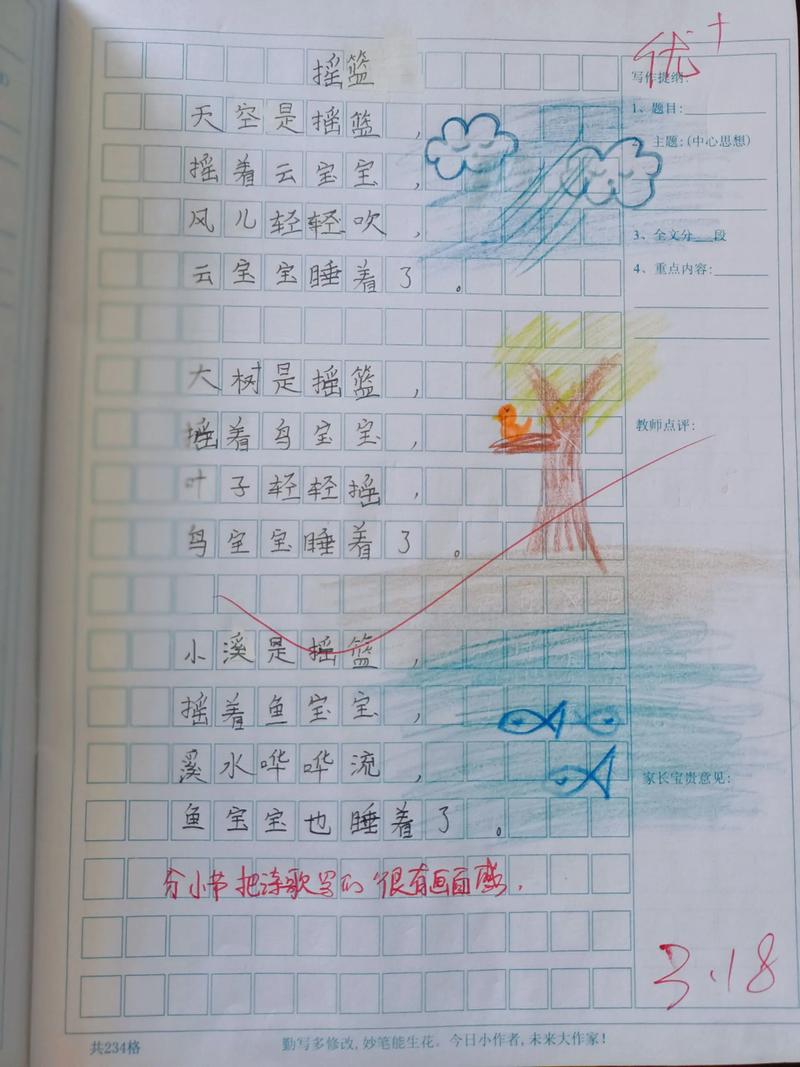 摇篮
天空是摇篮，
摇着云宝宝，
风儿轻轻吹，
云宝宝睡着了。
大树是摇篮，
摇着鸟宝宝，
叶子轻轻摇，
鸟宝宝睡着了。
小溪是摇篮，
摇着鱼宝宝，
溪水哗哗流，
鱼宝宝也睡着了。
分小节把诗歌写的很有画面感。
优+
写作提纲:
1、题目:
主题:(中心思想)
3、全文分__段
4、重点内容:
教师点评:
家长宝贵意见:
3.18
共234格
勤写多修改,妙笔能生花。今日小作者,未来大作家!